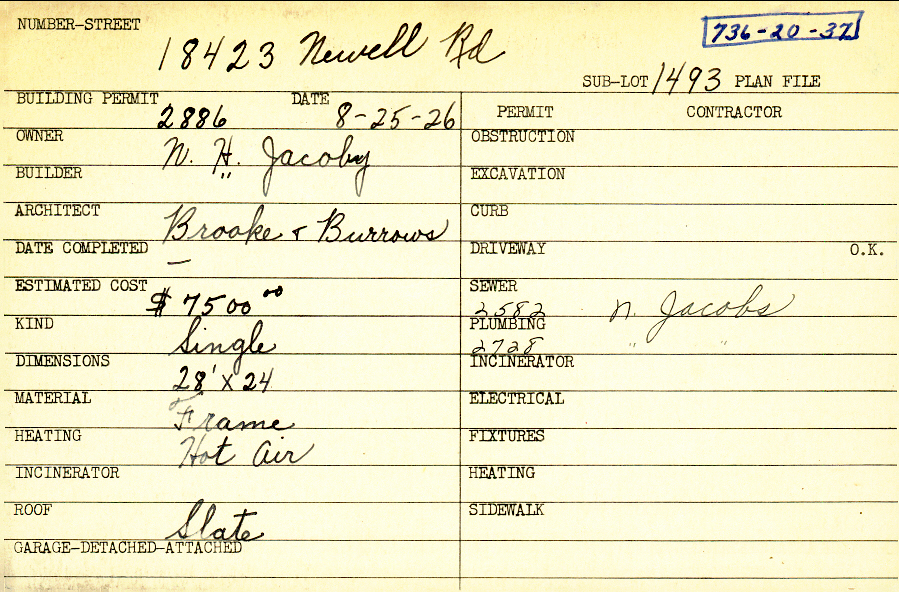 NUMBER-STREET 18423 Newell Rd
736-20-37
SUB-LOT 1493 PLAN FILE
BUILDING PERMIT 2886 DATE 8-25-26
PERMIT CONTRACTOR
OWNER N. H. Jacoby
OBSTRUCTION
BUILDER " 
EXCAVATION
ARCHITECT Brooke & Burrows
CURB
DATE COMPLETED —
DRIVEWAY O.K.
ESTIMATED COST $ 7500 00
SEWER 2582 N. Jacobs
KIND Single
PLUMBING 2728 " "
DIMENSIONS 28' X 24
INCINERATOR
MATERIAL Frame
ELECTRICAL
HEATING Hot Air
FIXTURES
INCINERATOR
HEATING
ROOF Slate
SIDEWALK
GARAGE-DETACHED-ATTACHED